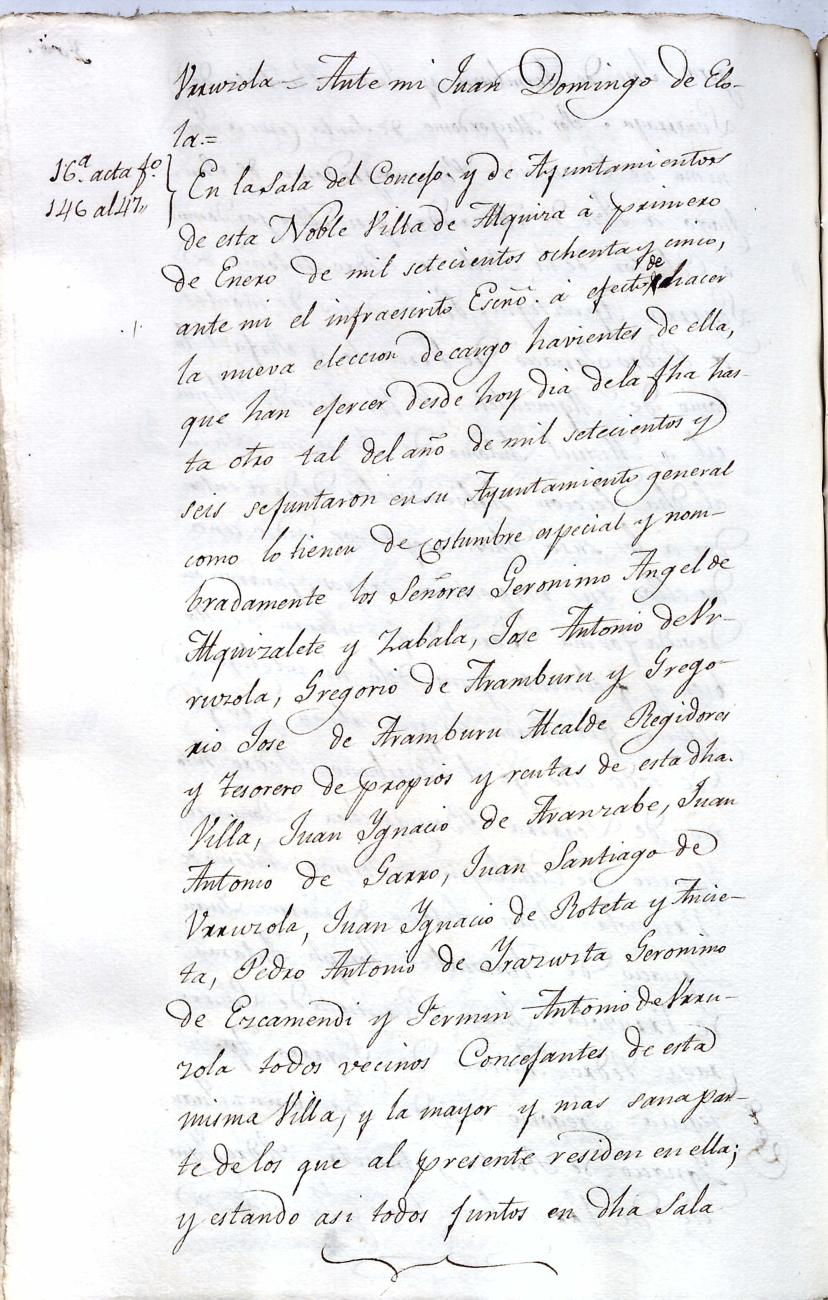 Urruzola = Ante mi Juan Domingo de Elo-
la.=
16.ª acta f.º
146 al 47,,
En la Sala del Concejo y de Ayuntamientos
de esta Noble Villa de Alquiza á primero
de Enero de mil setecientos ochenta y cinco,
ante mi el infraescrito Escnõ. á efecto de hacer
la nueva eleccion de cargo havientes de ella,
que han ejercer desde hoy dia de la fha has-
ta otro tal del año de mil setecientos y
seis se juntaron en su Ayuntamiento general
como lo tienen de costumbre especial y nom-
bradamente los Señores Geronimo Angel de
Alquizalete y Zabala, Jose Antonio de Ur-
ruzola, Gregorio de Aramburu y Grego-
rio Jose de Aramburu Alcalde Regidores
y Tesorero de propios y rentas de esta dha.
Villa, Juan Ygnacio de Aranzabe, Juan
Antonio de Garro, Juan Santiago de
Urruzola, Juan Ygnacio de Roteta y Ancie-
ta, Pedro Antonio de Yrazuzta Geronimo
de Ezcamendi y Fermin Antonio de Urru-
zola todos vecinos Concejantes de esta
misma Villa, y la mayor y mas sana par-
te de los que al presente residen en ella;
y estando asi todos juntos en dha Sala